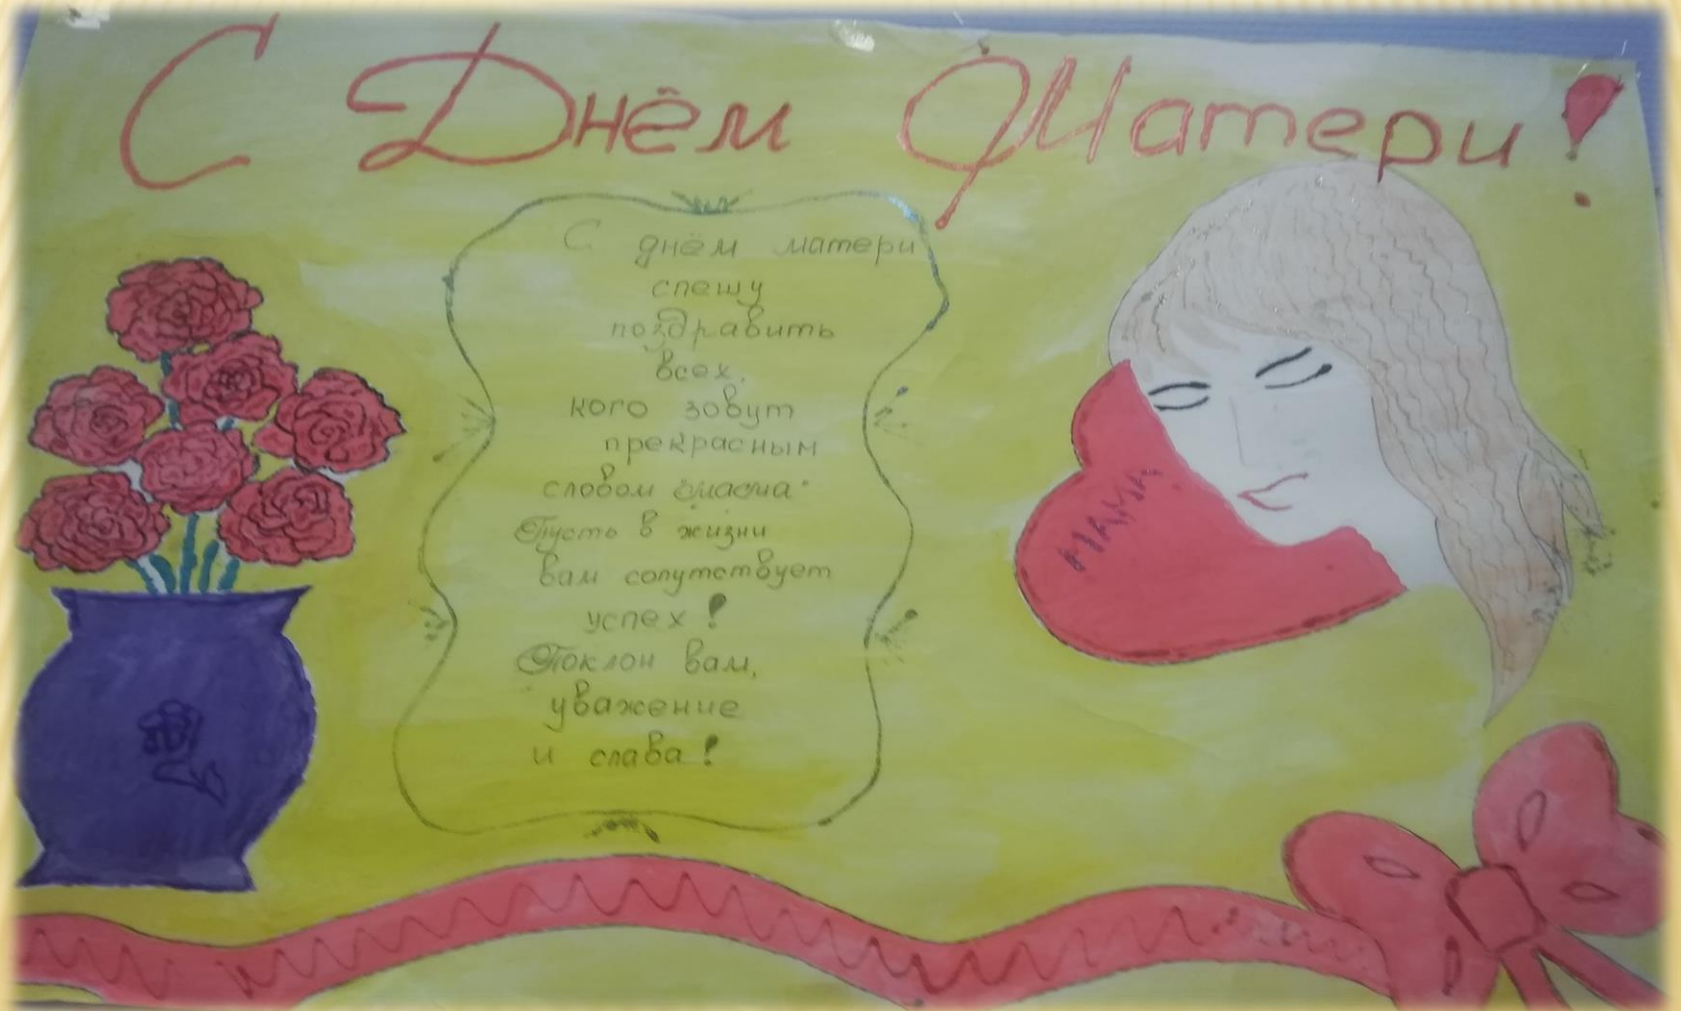 С Днём Матери!
С днём матери
спешу
поздравить
всех,
кого зовут
прекрасным
словом "мама"
Пусть в жизни
вам сопутствует
успех!
Поклон вам,
уважение
и слава!
МАМА